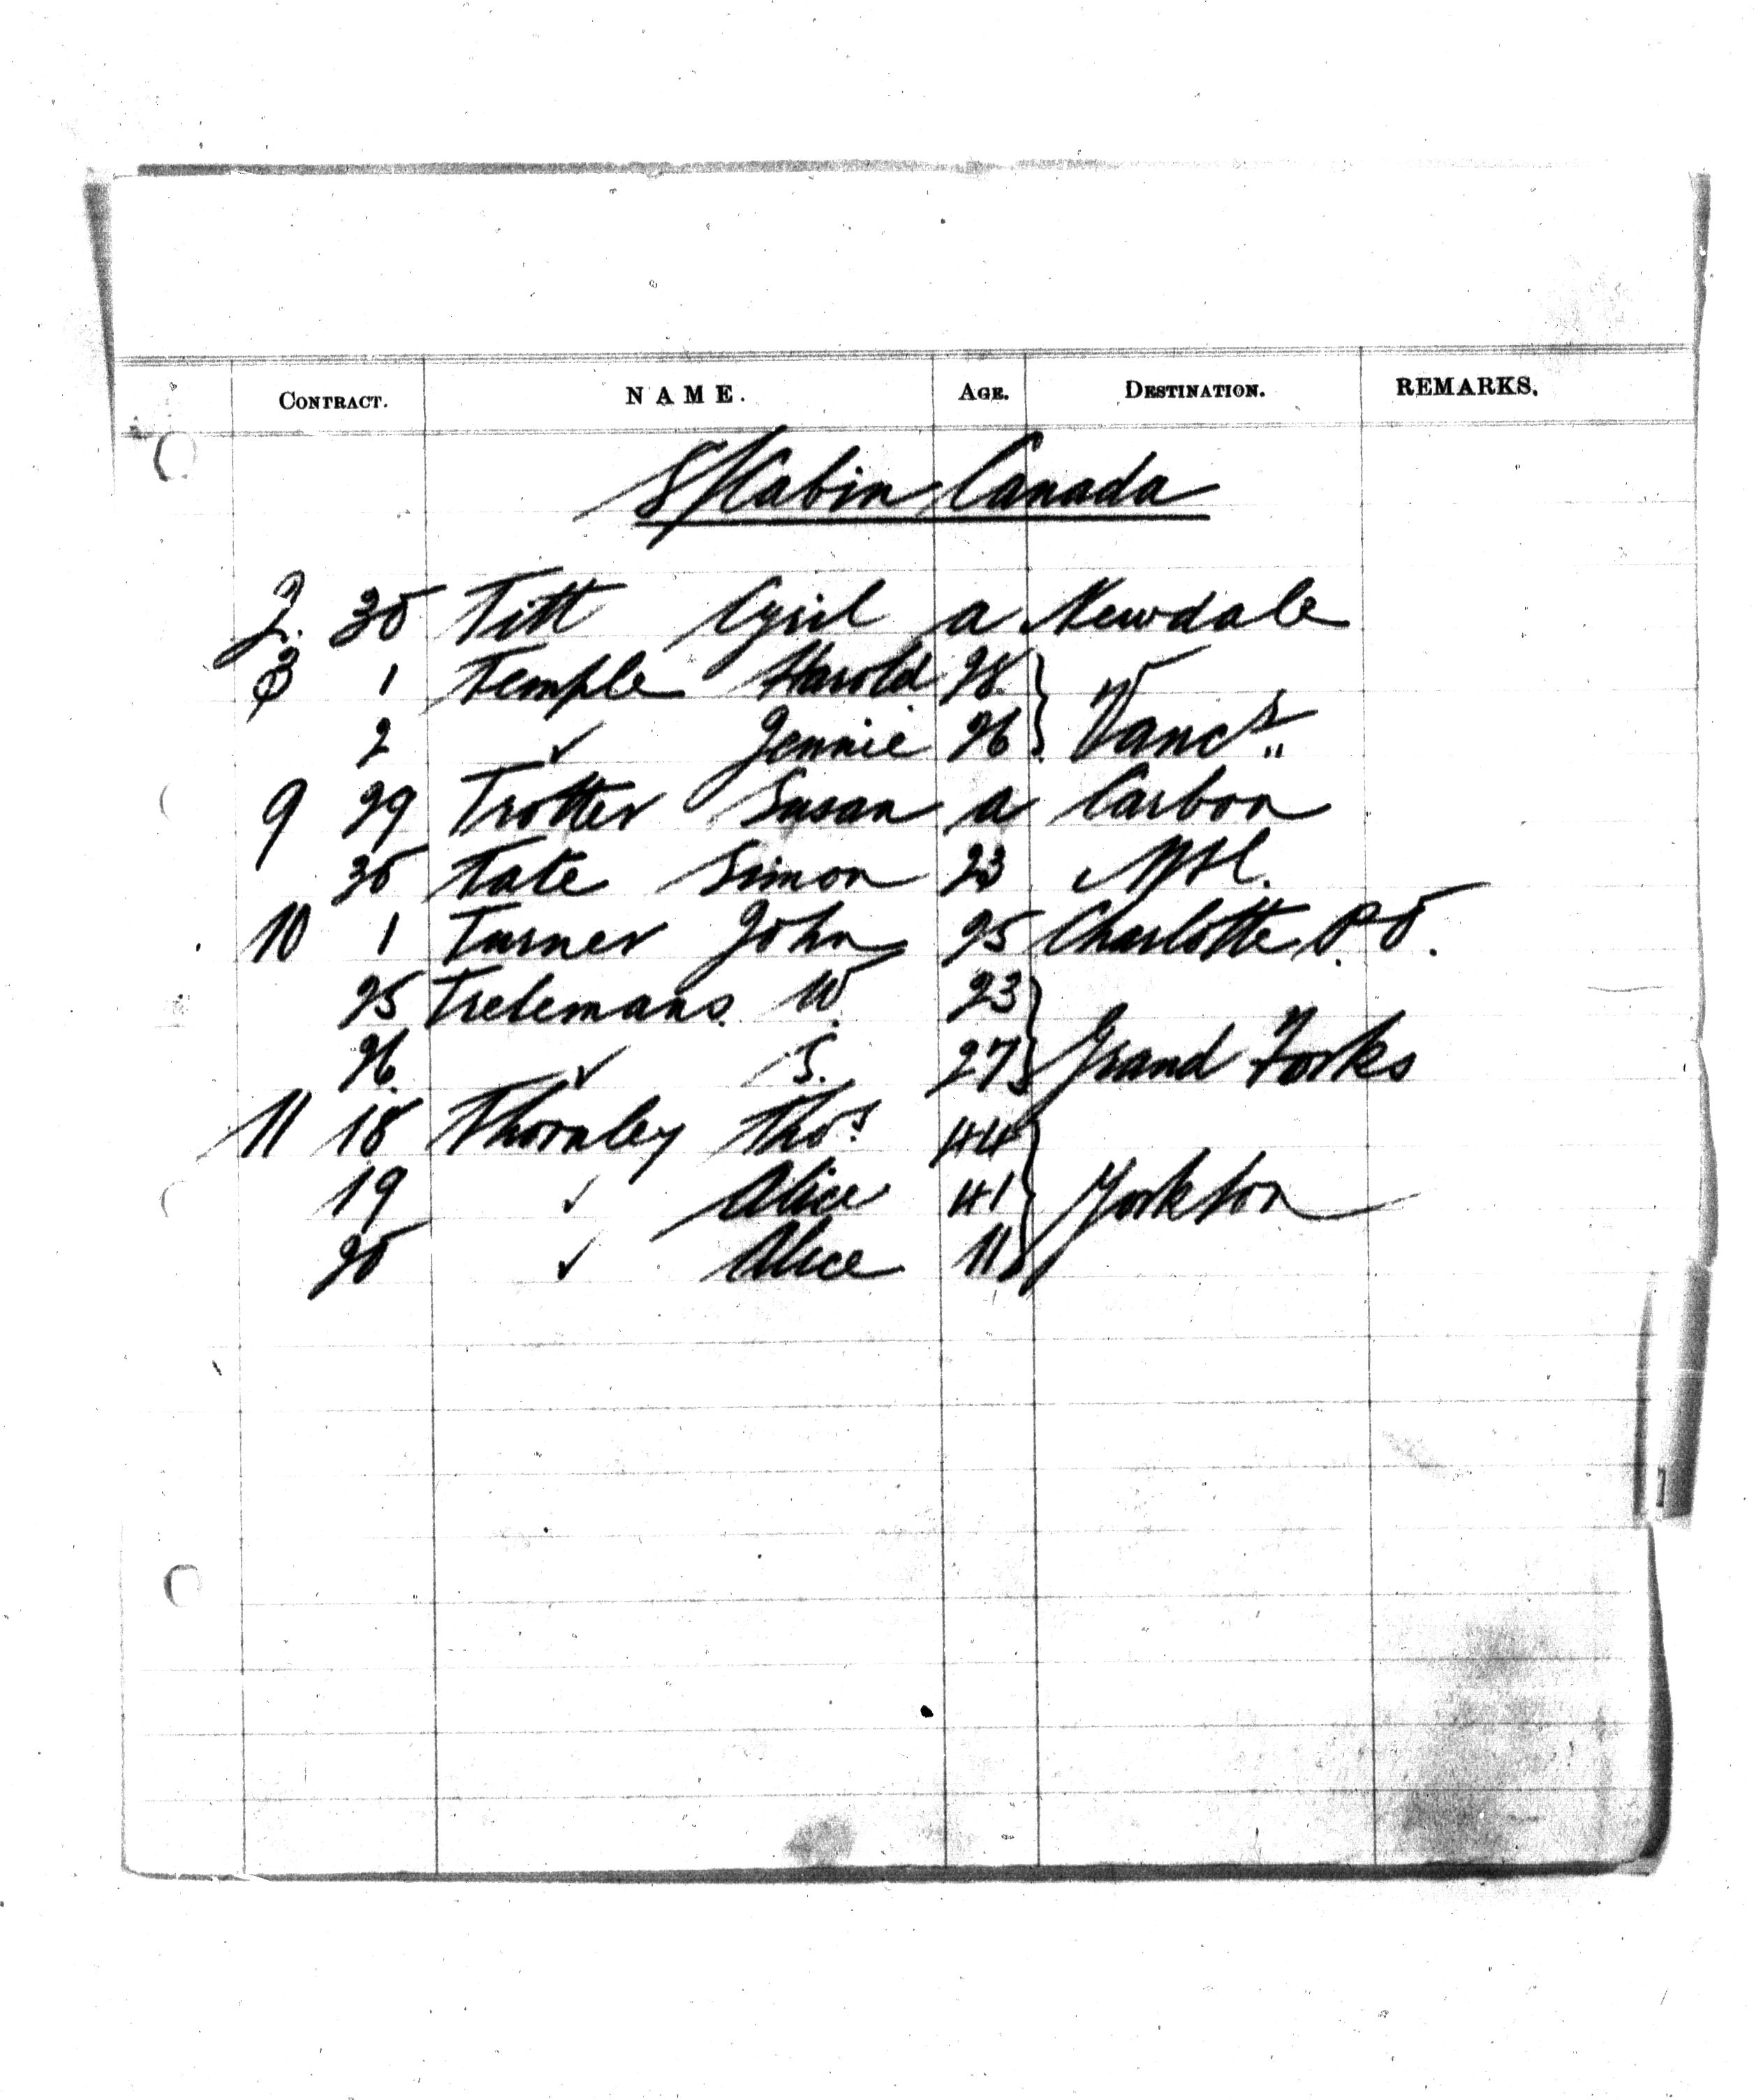 CONTRACT. NAME. AGE. DESTINATION. REMARKS.
S/Cabin Canada
2. 30 Titt Cyril a Newdale
3 1 Temple Harold 28 } Vancr
2 ✓ Jennie 26
9 29 Trotter Susan a Carbon
30 Tate Simon 23 Mtl.
10 1 Turner John 25 Charlotte P.O.
25 Trelemans. W. 23 } Grand Forks
26 ✓ S. 27
11 18 Thornley Thos 44 } Yorkton
19 ✓ Alice 41
20 ✓ Alice 11